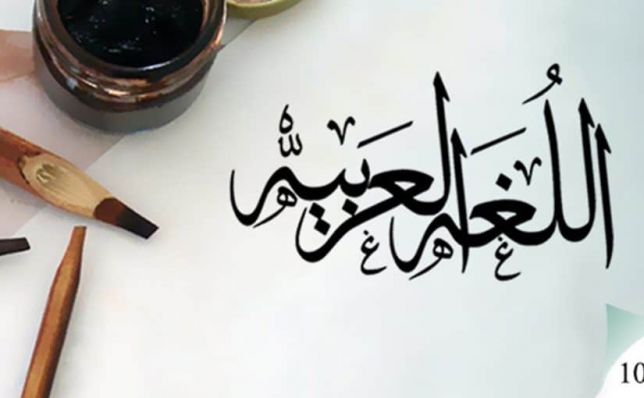 اللُّغَةُ العَرَبِيَّةُ
10